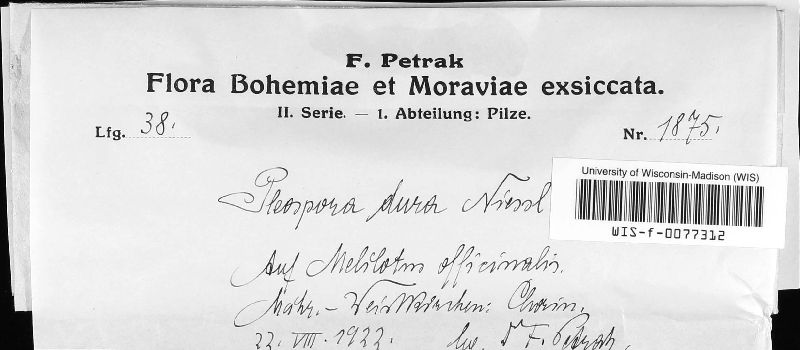 F. Petrak
Flora Bohemiae et Moraviae exsiccata.
II. Serie. — 1. Abteilung: Pilze.
Lfg. 38.
Nr. 1875.
University of Wisconsin-Madison (WIS)
WIS-f-0077312
Pleospora dura Niessl
Auf Melilotus officinalis.
Mähr.-Weisskirchen: Chorin.
22. VIII. 1922. F. Petrak.